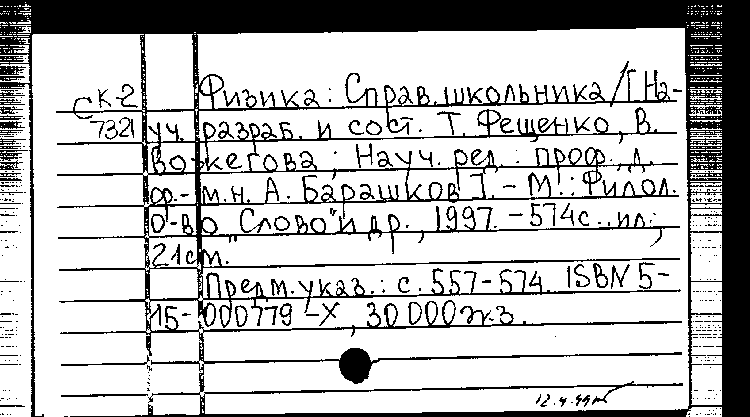 К-2
С
7321
Физика: Справ. школьника / [На-
уч. разраб. и сост. Т. Фещенко, В.
Вожегова; Науч. ред.: проф., д.
ф.-м.н. А. Барашков]. - М.: Филол.
о-во "Слово" и др., 1997. - 574с.: ил.;
21см.
Предм. указ.: с. 557-574. ISBN 5-
15-000779-X, 30 000 экз.
12.4.99